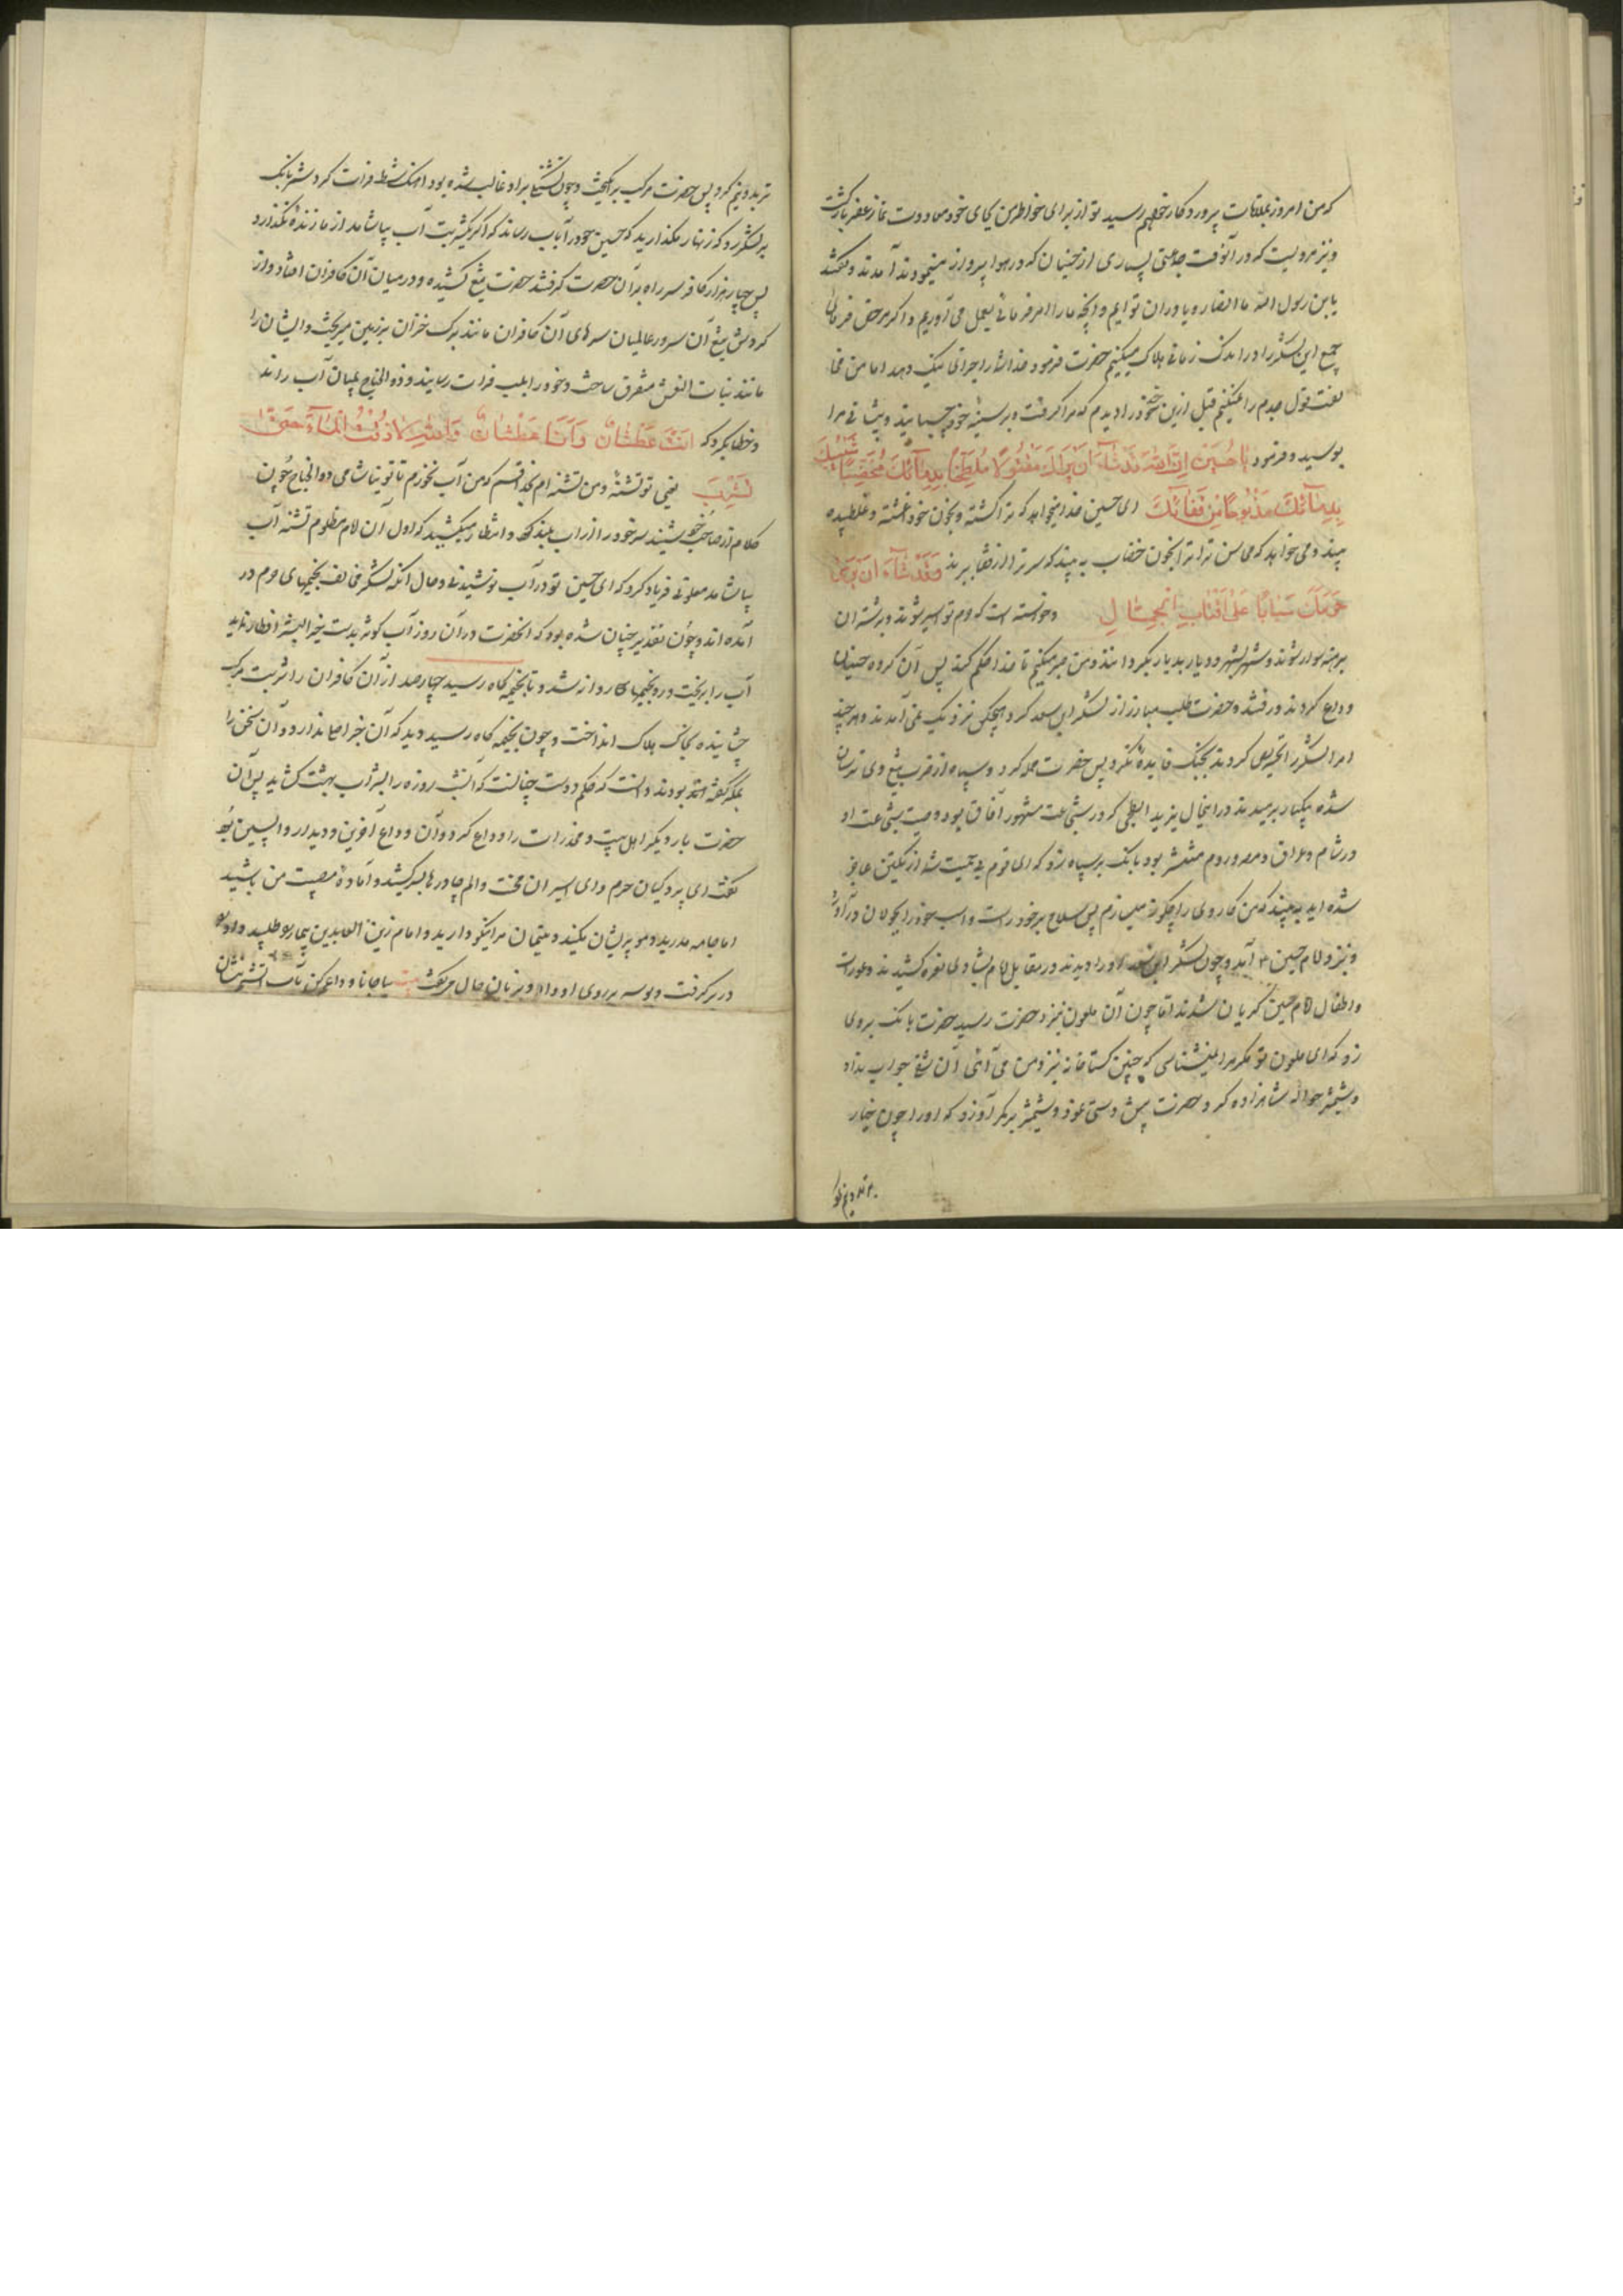 که من امروز بملاقات پروردگار خواهم رسید تو از برای خاطر من بجای خود معاودت نماز عفر بازگشت
و نیز مرویست که در آنوقت جماعتی بسیاری از جنیان که در هوا پرواز مینمودند آمدند و گفتند
یابن رسول الله ما انصار و یاوران توایم و آنچه ما را امر فرمائی بعمل می آوریم و اگر مرخص فرمائی
جمیع این لشکر را در اندک زمانی هلاک میکنیم حضرت فرمود خدا شما را جزای نیک دهد اما من مخا
لفت قول جدم را نمیکنم قبل ازین جدّ خود را دیدم که مرا گرفت و بر سینه خود چسبانید و پیشانی مرا
بوسید و فرمود یا حُسَین اِنَّ اللهَ قَدْ شَاءَ اَنْ یَرَاکَ مَقْتُولاً مُلَطَّخاً بِدِمَائِکَ مُخَضَّباً شَیْبُکَ
بِدِمَائِکَ مَذْبُوحاً مِنْ قَفَائِکَ ای حسین خدا میخواهد که ترا کشته و بخون خود آغشته و غلطیده
بیند و می خواهد که محاسن ترا بخون خضاب به بیند که سر ترا از قفا ببرند وَقَدْ شَاءَ اَنْ یَرَی
حَرَمَکَ سَبَایَا عَلَی اَقْتَابِ الْجِمَالِ و خواسته است که حرم تو اسیر شوند و بر شتران
برهنه سوار شوند و شهر بشهر و دیار بدیار بگردانند و من صبر میکنم تا خدا حکم کند پس آن گروه جنیان
وداع کردند و رفتند و حضرت طلب مبارز از لشکر ابن سعد کرد و هیچکس نزدیک نمی آمدند و هر چند
امرا لشکر را تحریص کردند بجنگ فایده نکرد پس حضرت حمله کرد و سپاه از ضرب تیغ وی ترسان
شده بیکبار برمیدند در اینحال یزید ابطحی که در شجاعت مشهور آفاق بود و صیت شجاعت او
در شام و عراق و مصر و روم منتشر بود بانک بر سپاه زد که ای قوم بی حمیت شما از یکتن عاجز
شده اید به بینید که من کار وی را چکونه میسازم پس سلاح بر خود راست و اسب خود را بجولان در آورد
و نزد امام حسین آمد و چون لشکر ابن سعد او را دیدند در مقابل امام بشادی نعره کشیدند و عورات
و اطفال امام حسین گریان شدند اما چون آن ملعون نزد حضرت رسید حضرت بانک بروی
زد که ای ملعون تو مگر مرا نمیشناسی که چنین گستاخانه نزد من می آئی آن شقی جواب نداد
و شمشیر حواله شاهزاده کرد حضرت پیش دستی نمود و شمشیر بر کمر او زد که او را چون خیار
تر بدو نیم کرد
تر بدو نیم کرد پس حضرت مرکب برانگیخت و چون تشنگی بر او غالب شده بود آهنگ شط فرات کرد شمر بانک
بر لشکر زد که زنهار مگذارید که حسین خود را بآب رساند که اگر یکشربت آب بیاشامد از ما زنده نگذارد
پس چهار هزار کافر سر راه بر آن حضرت گرفتند حضرت تیغ کشیده و در میان آن کافران افتاد و از
گردش تیغ آن سرور عالمیان سرهای آن کافران مانند برک خزان بر زمین میریخت و ایشان را
مانند بنات النعش متفرق ساخت و خود را بلب فرات رسانید و ذو الجناح بمیان آب راند
و خطاب کرد که اَنْتَ عَطْشَانٌ وَ اَنَا عَطْشَانٌ وَ اللهِ لَا ذُقْتُ الْمَاءَ حَتَّی
تَشْرِبَ یعنی تو تشنهٔ و من تشنه ام بخدا قسم که من آب نخورم تا تو نیاشامی ذو الجناح چون
کلام از صاحب خود شنید سر خود را از آب بلند کرد و انتظار میکشید که اول آن امام مظلوم تشنه آب
بیاشامد ملعونی فریاد کرد که ای حسین تو در آب نوشیدنی و حال آنکه لشکر مخالف بخیمهای حرم در
آمده اند و چون تقدیر چنان شده بود که آنحضرت در آن روز آب کوثر بدست خیر البشر افطار نماید
آب را بریخت و رو بخیمها روانه شد و تا بخیمه گاه رسید چهار صد از آن کافران را شربت مرک
چشانیده بخاک هلاک انداخت و چون بخیمه گاه رسید دید که آن خبر اصلا ندارد و آن سخن را
بمکر گفته بودند دانست که حکم دوست چنانست که آنشب روزه را بشراب بهشت گشاید پس آن
حضرت بار دیگر اهل بیت و مخدرات را وداع کرد و آن وداع آخرین و دیدار واپسین بود
گفت ای پردگیان حرم و ای اسیران محنت و الم چادرها بسر کشید و آماده مصیبت من باشید
اما جامه مدرید و مو پریشان مکنید و یتیمان مرا نیکو دارید و امام زین العابدین بیمار را طلبید و او را
در بر گرفت و بوسه بر روی او داد و بزبان حال میگفت بیت بیا جانا وداعم کن